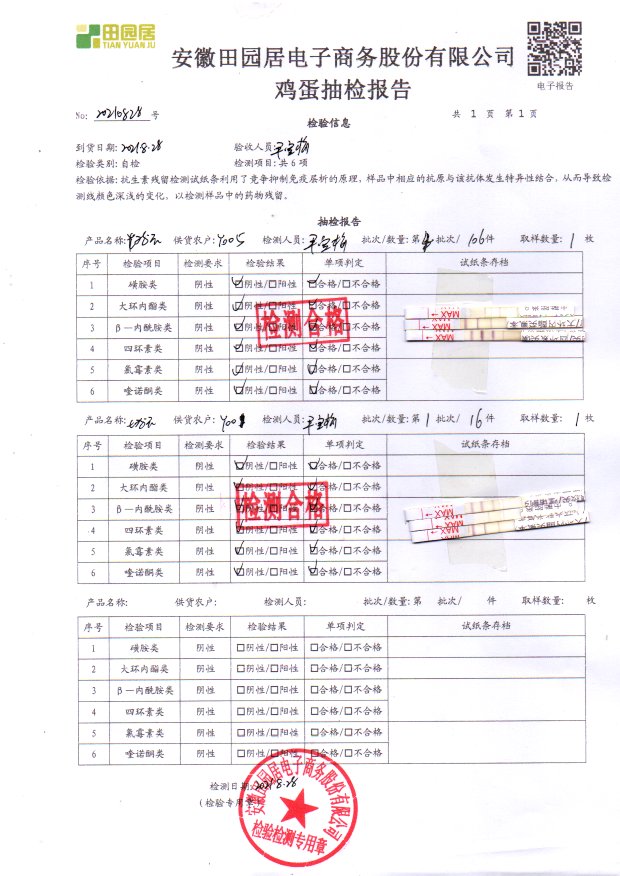 田园居
TIAN YUAN JU
安徽田园居电子商务股份有限公司
鸡蛋抽检报告
电子报告
No: 20210828 号
共 1 页 第 1 页
检验信息
到货日期: 2021.8.28 验收人员:
检验类别: 自检 检测项目: 共 6 项
检验依据: 抗生素残留检测试纸条利用了竞争抑制免疫层析的原理, 样品中相应的抗原与该抗体发生特异性结合, 从而导致检
测线颜色深浅的变化, 以检测样品中的药物残留。
抽检报告
产品名称: 供货农户: Y005 检测人员: 批次/数量: 第1批次/ 106件 取样数量: 1 枚
序号 检验项目 检测要求 检验结果 单项判定 试纸条存档
1 磺胺类 阴性 ☑阴性/□阳性 ☑合格/□不合格
2 大环内酯类 阴性 ☑阴性/□阳性 ☑合格/□不合格
3 β—内酰胺类 阴性 ☑阴性/□阳性 ☑合格/□不合格
4 四环素类 阴性 ☑阴性/□阳性 ☑合格/□不合格
5 氟霉素类 阴性 ☑阴性/□阳性 ☑合格/□不合格
6 喹诺酮类 阴性 ☑阴性/□阳性 ☑合格/□不合格
检测合格
MAX
MAX
MAX
产品名称: 供货农户: 检测人员: 批次/数量: 第1批次/ 16件 取样数量: 1 枚
序号 检验项目 检测要求 检验结果 单项判定 试纸条存档
1 磺胺类 阴性 ☑阴性/□阳性 ☑合格/□不合格
2 大环内酯类 阴性 ☑阴性/□阳性 ☑合格/□不合格
3 β—内酰胺类 阴性 ☑阴性/□阳性 ☑合格/□不合格
4 四环素类 阴性 ☑阴性/□阳性 ☑合格/□不合格
5 氟霉素类 阴性 ☑阴性/□阳性 ☑合格/□不合格
6 喹诺酮类 阴性 ☑阴性/□阳性 ☑合格/□不合格
检测合格
MAX
MAX
MAX
产品名称: 供货农户: 检测人员: 批次/数量: 第 批次/ 件 取样数量: 枚
序号 检验项目 检测要求 检验结果 单项判定 试纸条存档
1 磺胺类 阴性 □阴性/□阳性 □合格/□不合格
2 大环内酯类 阴性 □阴性/□阳性 □合格/□不合格
3 β—内酰胺类 阴性 □阴性/□阳性 □合格/□不合格
4 四环素类 阴性 □阴性/□阳性 □合格/□不合格
5 氟霉素类 阴性 □阴性/□阳性 □合格/□不合格
6 喹诺酮类 阴性 □阴性/□阳性 □合格/□不合格
检测日期: 2021.8.28
(检验专用章)
安徽田园居电子商务股份有限公司
检验检测专用章